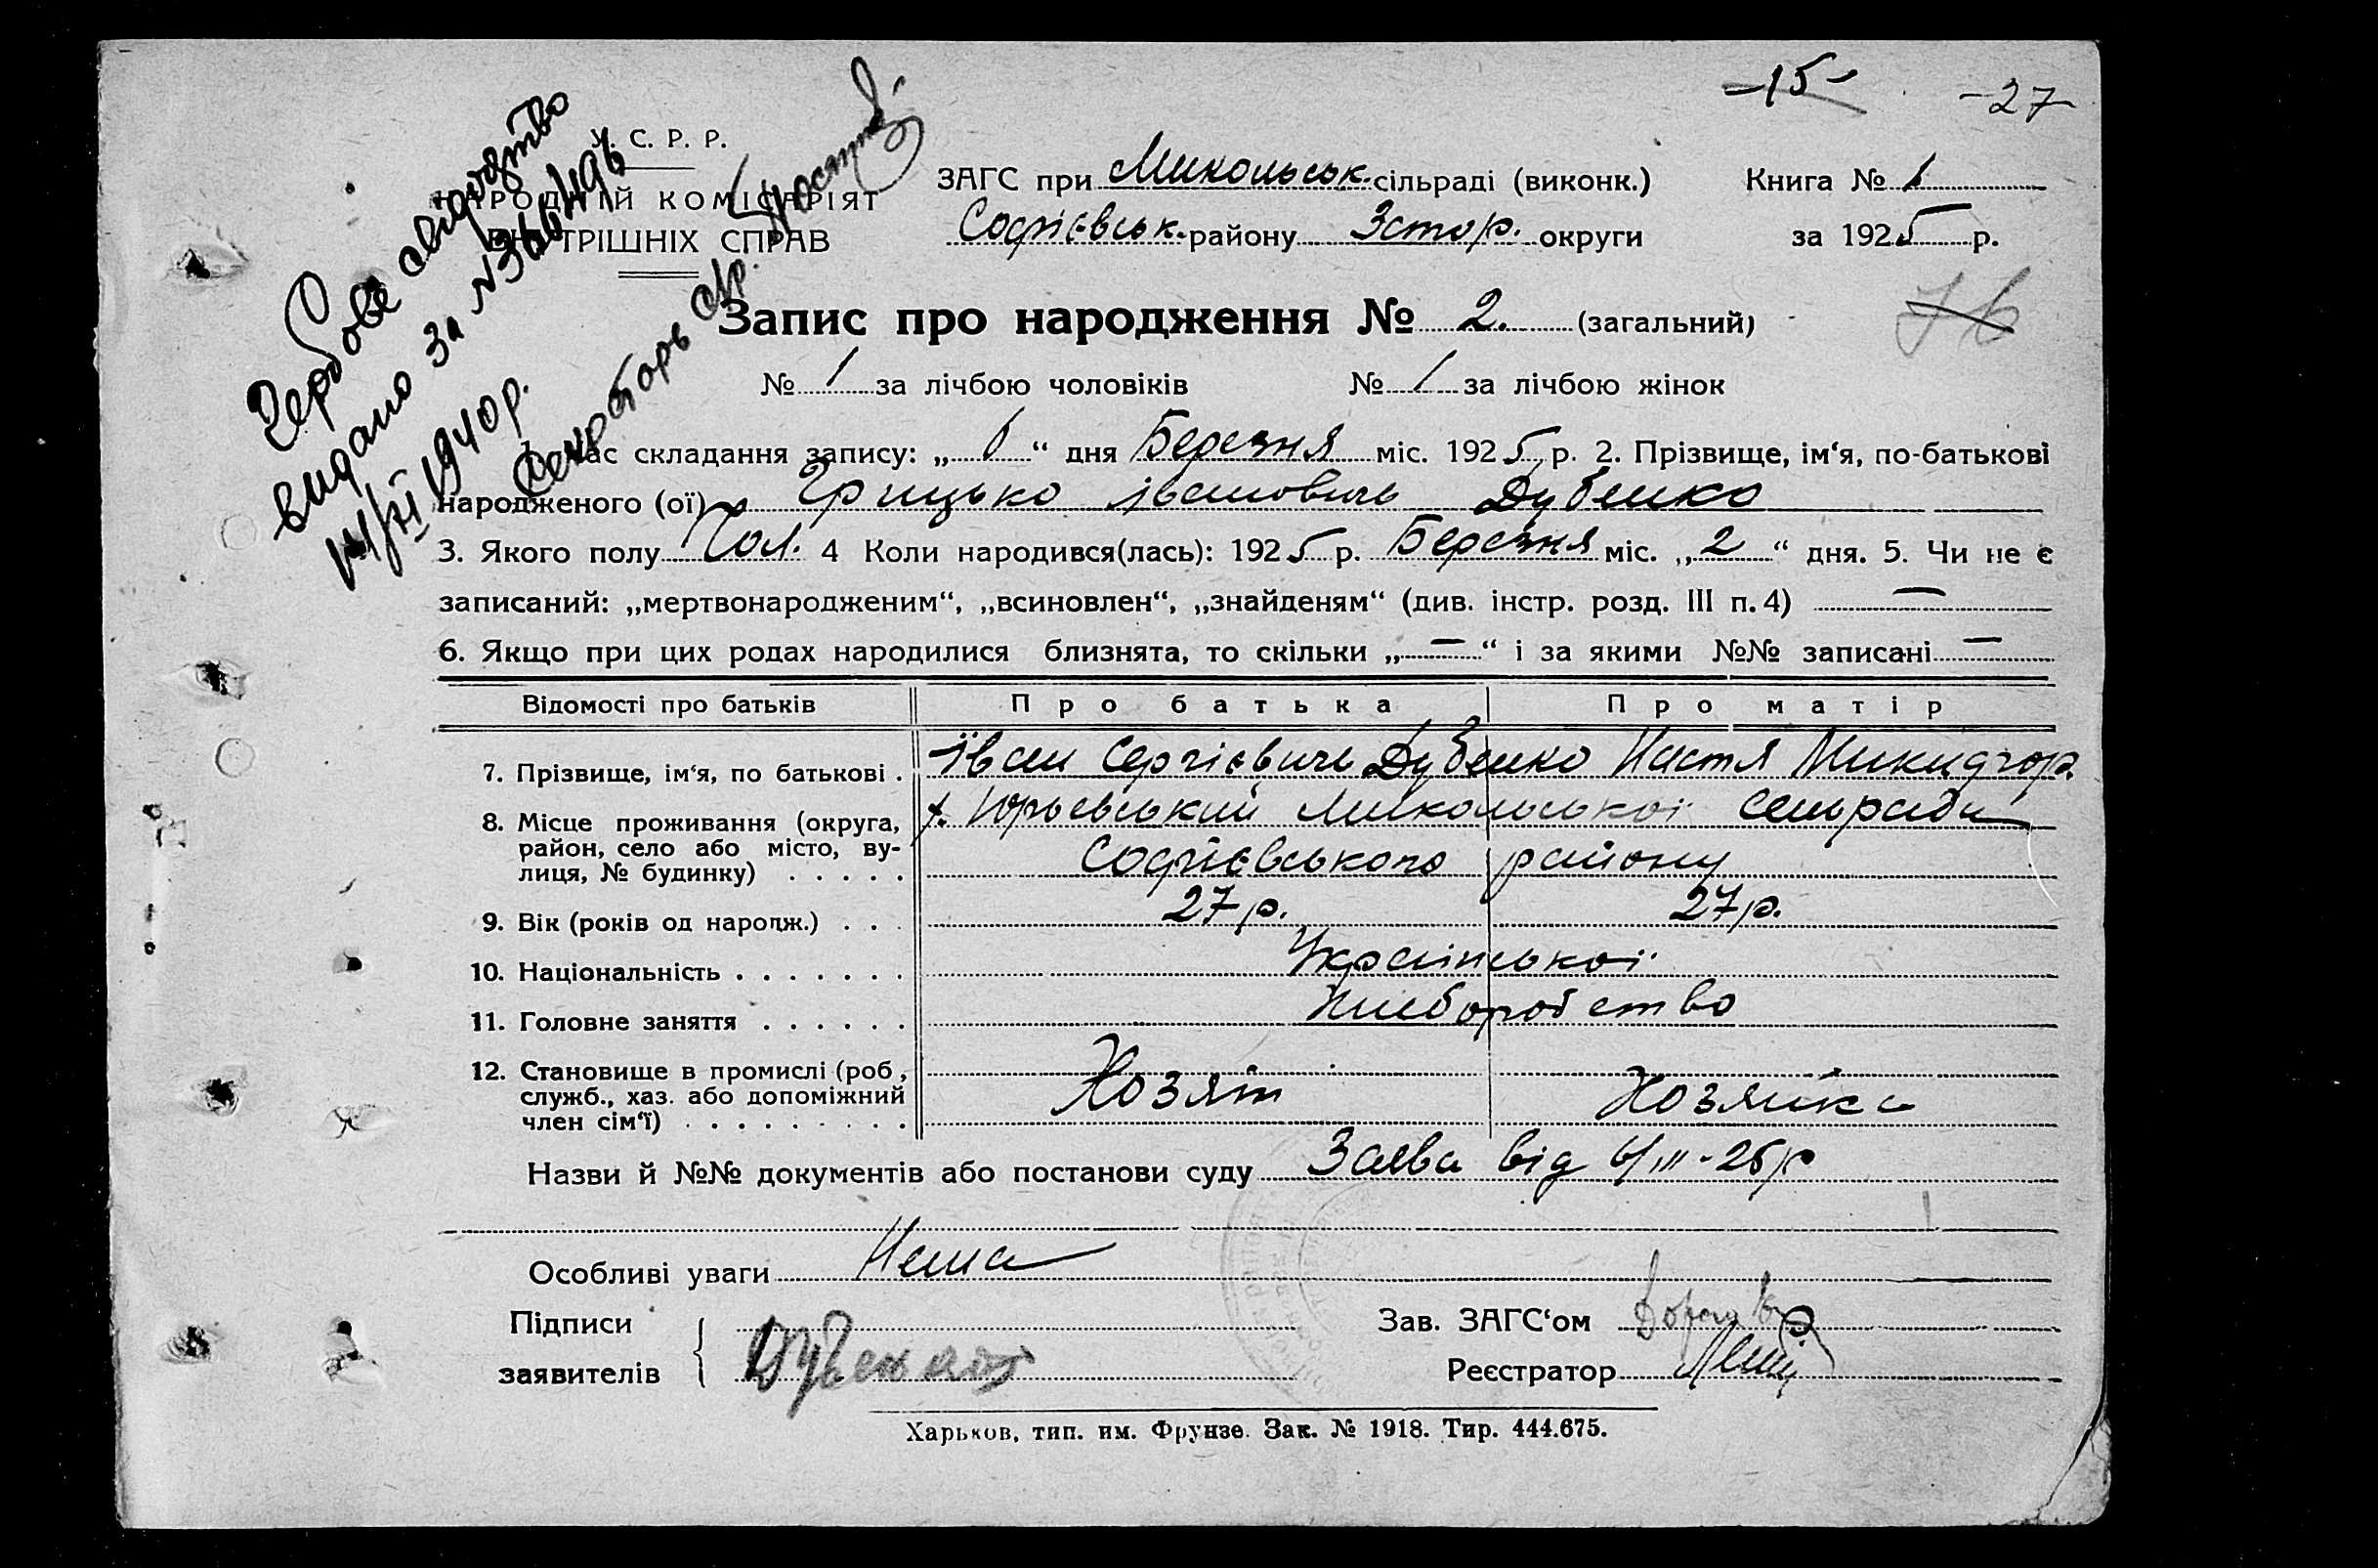 -15-
-27-
У. С. Р. Р.
НАРОДНІЙ КОМІСАРІЯТ
ВНУТРІШНІХ СПРАВ
Гербове свідоцтво
видано за №
14/XI 1940 р.
Секретарь с/р.
ЗАГС при Микольськ. сільраді (виконк.)
Софієвськ. району Запор. округи
Книга № 1
за 1925 р.
Запис про народження № 2. (загальний)
№ 1 за лічбою чоловіків № 1 за лічбою жінок
час складання запису: „ 6 “ дня Березня міс. 1925 р. 2. Прізвище, ім‘я, по-батькові
народженого (ої) Грицько Івановичь Дубенко
3. Якого полу Чол. 4 Коли народився(лась): 1925 р. Березня міс. „ 2 “ дня. 5. Чи не є
записаний: „мертвонародженим“, „всиновлен“, „знайденям“ (див. інстр. розд. III п. 4) —
6. Якщо при цих родах народилися близнята, то скільки „ — “ і за якими №№ записані —
Відомості про батьків Про батька Про матір
7. Прізвище, ім‘я, по батькові . Іван Сергієвичь Дубенко Настя Никидфор.
8. Місце проживання (округа, х. Юрьевський Микольськоі сельради
район, село або місто, ву- Софієвського району
лиця, № будинку) . . . . .
9. Вік (років од народж.) . . . 27 р. 27 р.
10. Національність . . . . . . . Українськоі
11. Головне заняття . . . . . . Хлеборобство
12. Становище в промислі (роб,
служб., хаз. або допоміжний Хозяїн Хозяйка
член сім‘ї) . . . . . . . . .
Назви й №№ документів або постанови суду Заява від 6/III-25 р
Особливі уваги Нема
Підписи
заявителів Дубенко
Зав. ЗАГС‘ом
Реєстратор
Харьков, тип. им. Фрунзе. Зак. № 1918. Тир. 444.675.